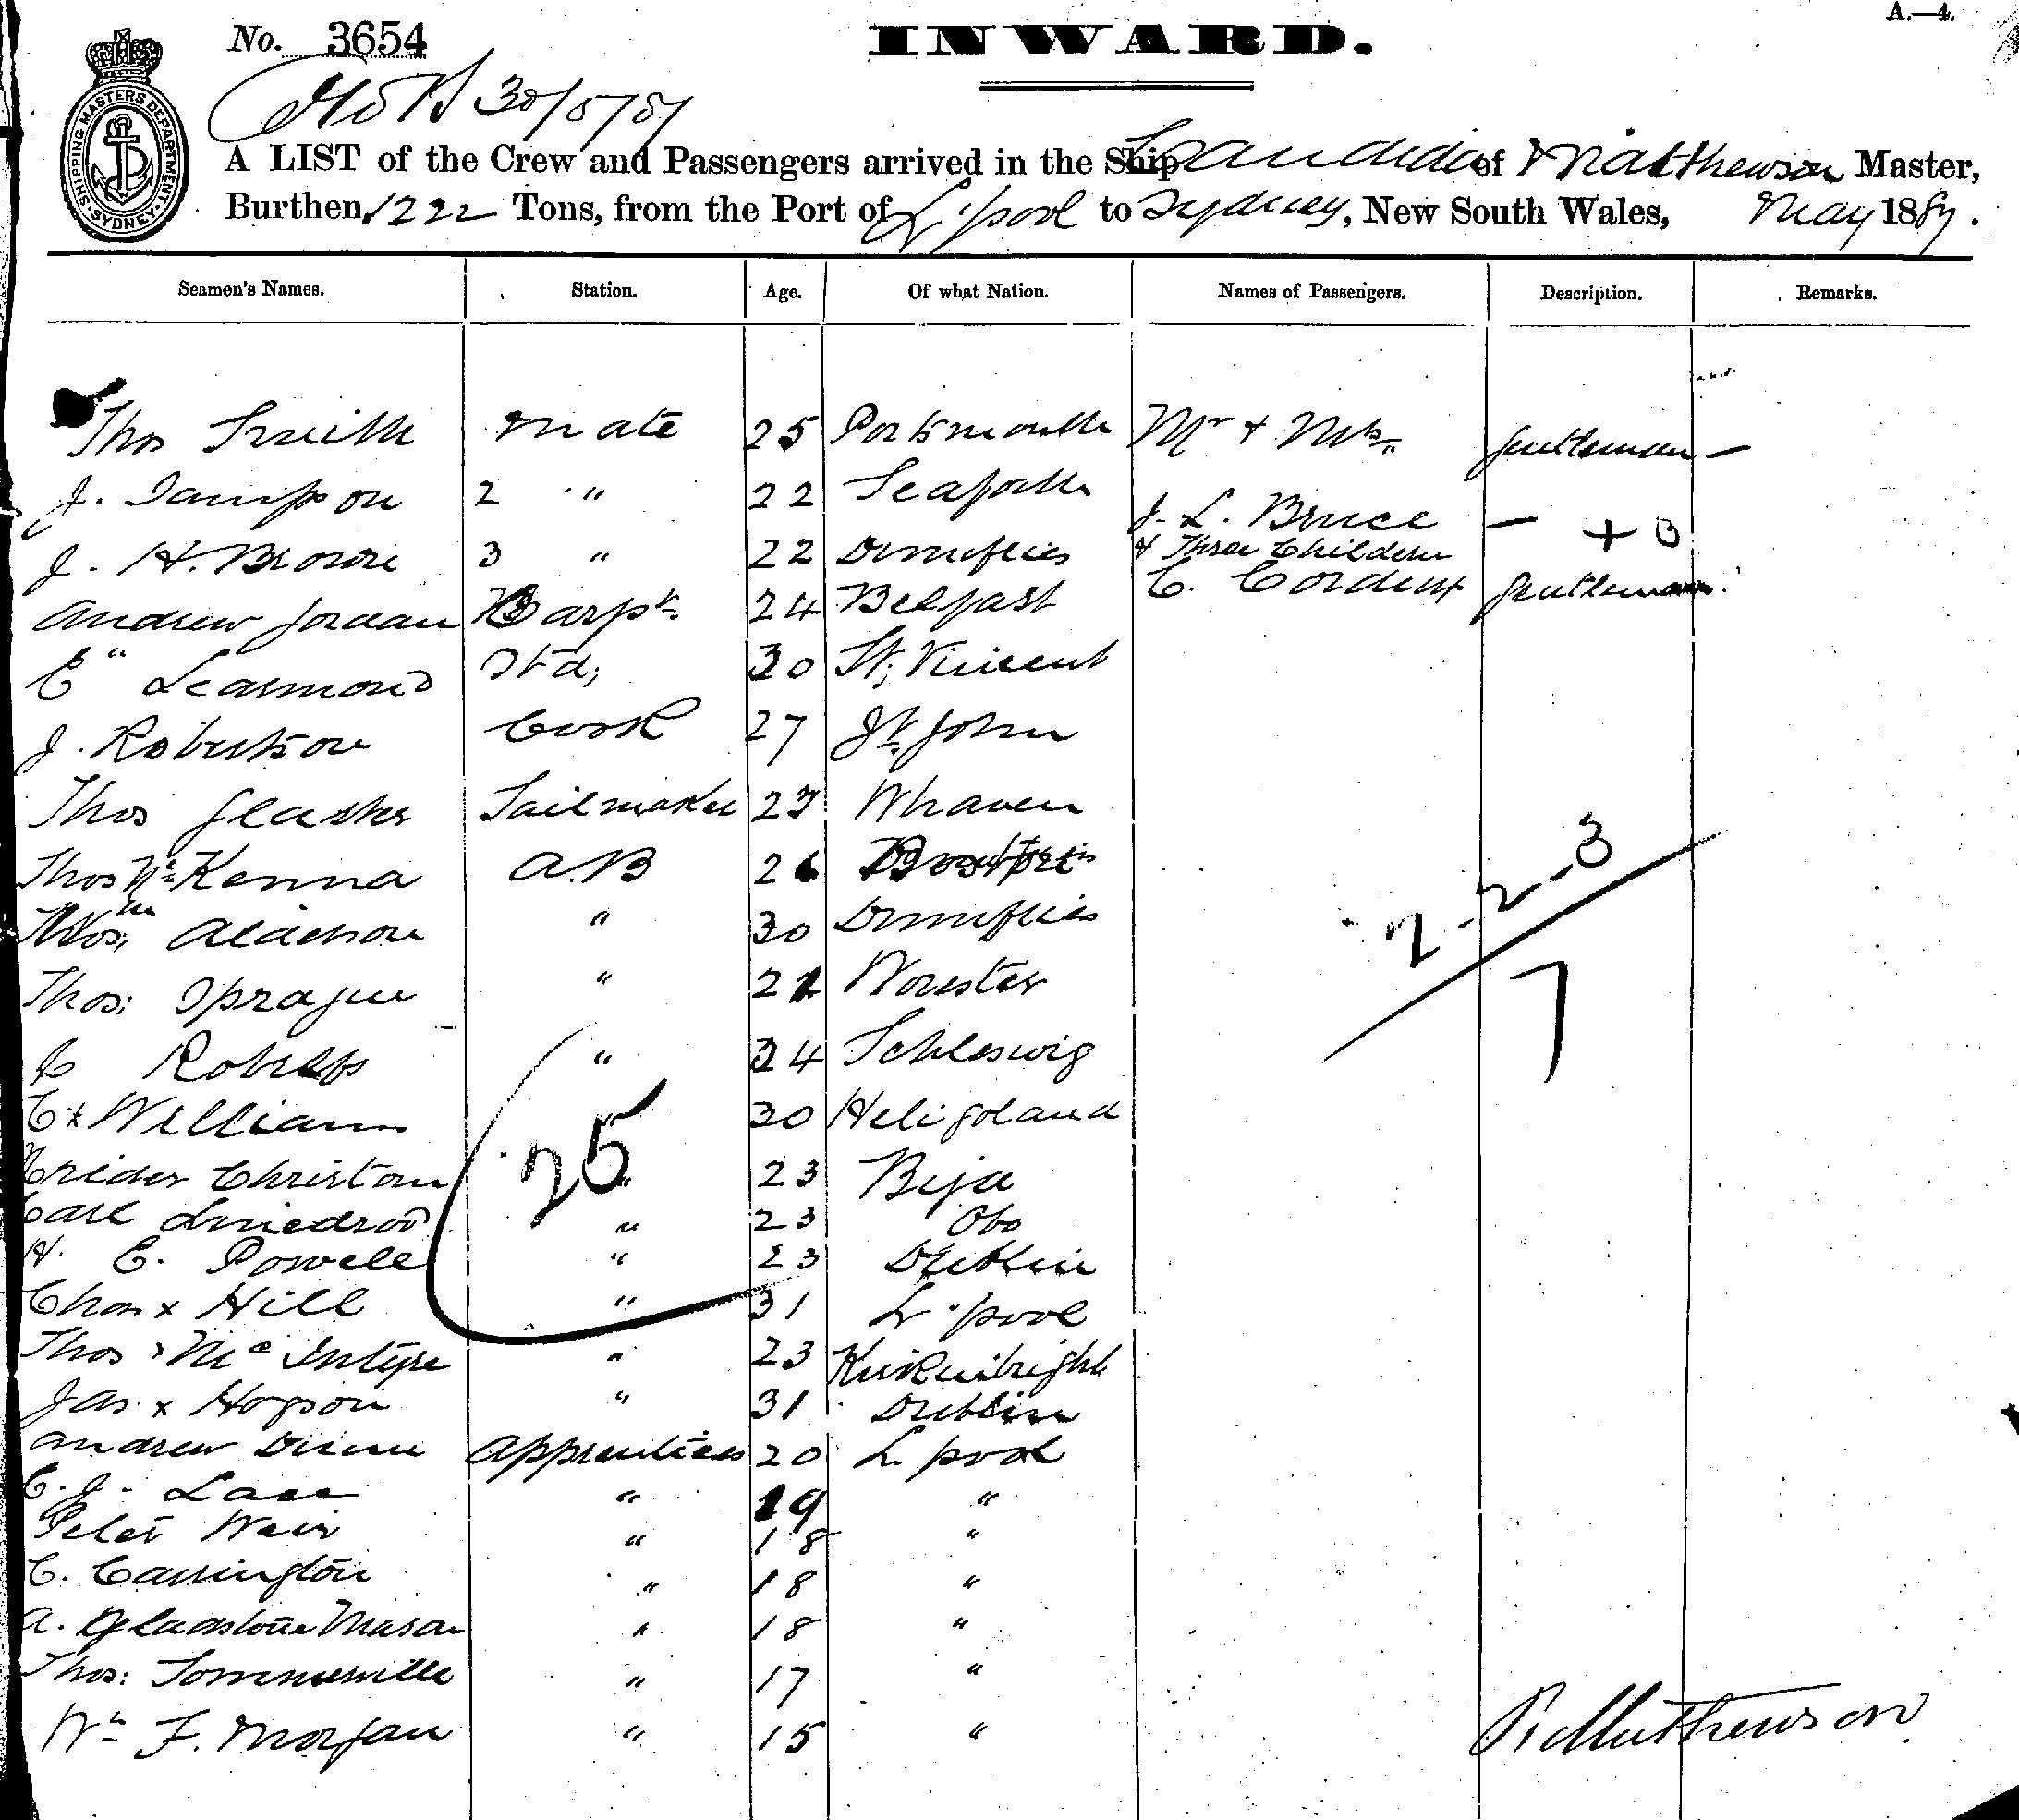 No. 3654
INWARD.
A.—4.
SHIPPING MASTERS DEPARTMENT
SYDNEY
30/5/87
A LIST of the Crew and Passengers arrived in the Ship Candida of Matthewson Master,
Burthen 1222 Tons, from the Port of L'pool to Sydney, New South Wales, May 1887.
Seamen's Names. Station. Age. Of what Nation. Names of Passengers. Description. Remarks.
Thos Smith mate 25 Portsmouth Mr + Mrs gentleman —
J. 2 " 22 Seaforth J. L. Bruce — + 3
J. H. Brown 3 " 22 Dumfries + Three Children
Andrew Jordan Carpr 24 Belfast C. gentleman
E Learmond Std; 30 St; Vincent
J. Robertson Cook 27 St John
Thos Sailmaker 27 Whaven
Thos Mc Kenna A.B 26
Alderson " 30 Dumfries
Thos: Sprague " 21 Worester
" 24 Schleswig
C x William 30 Heligoland
Christom " 23
Carl " 23
H. E. Powell " 23 Dublin
Chas x Hill " 31 L'pool
Thos x Mc Intyre " 23 Kirkuibright
Jas x Hogson " 31 Dublin
Andrew Dunn Apprentices 20 L pool
C. J. Lace " 19 "
Peter Weir " 18 "
C. Carrington " 18 "
A. Gladstone Mason " 18 "
Thos: Sommerville " 17 "
Wm F. Morgan " 15 "
25
2-2-3
7
Matthewson